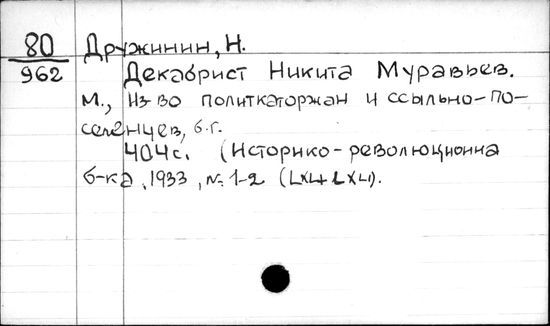 80 Дружинин, Н.
962 Декабрист Никита Муравьев.
М., Из-во политкаторжан и ссыльно-по-
селенцев, б.г.
404 с. (Историко-революционна
б-ка, 1933, № 1-2